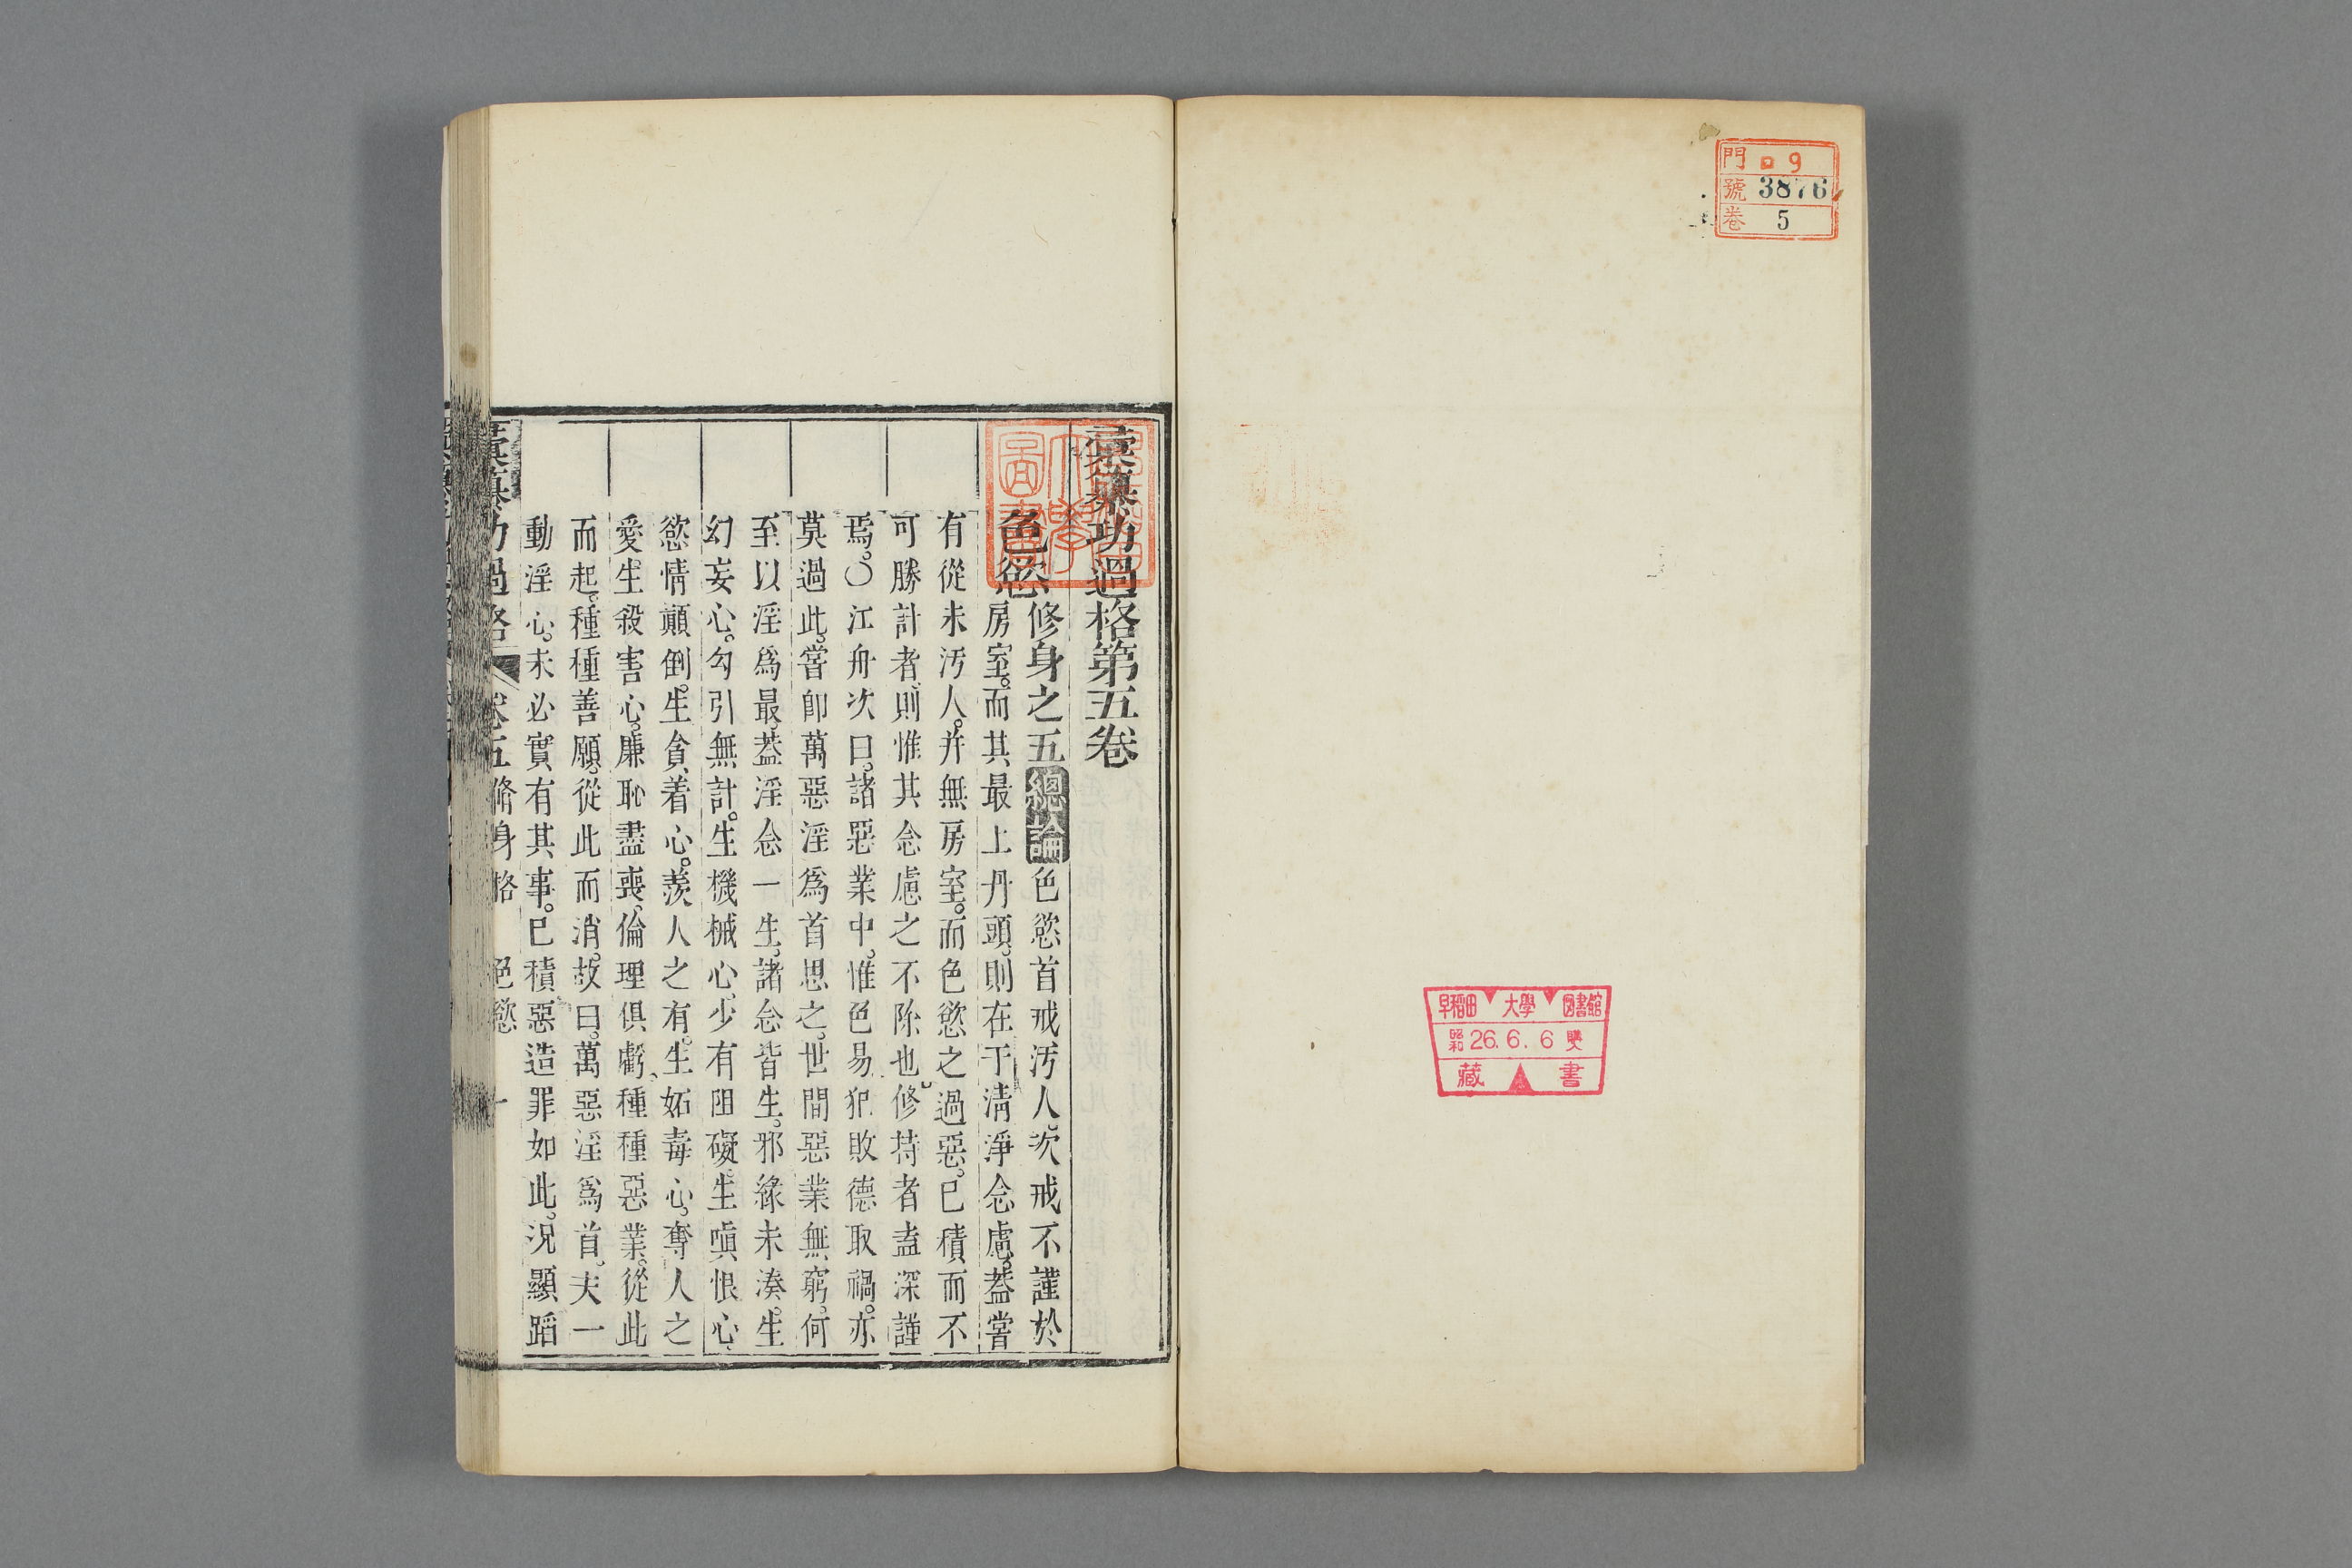 門 ロ 9
號 3876
卷 5
早稲田 大學 図書館
昭和 26. 6. 6 購
藏 書
彙纂功過格第五卷
色慾 修身之五 總論 色慾首戒汚人次戒不謹於
房室。而其最上丹頭。則在于淸淨念慮。葢嘗
有從未汚人。并無房室。而色慾之過惡。已積而不
可勝計者。則惟其念慮之不除也。修持者盍深謹
焉。〇江舟次曰。諸惡業中。惟色易犯敗德取禍。亦
莫過此。嘗卽萬惡淫爲首思之。世間惡業無窮。何
至以淫爲最。葢淫念一生。諸念皆生。邪緣未湊。生
幻妄心。勾引無計。生機械心。少有阻礙。生嗔恨心。
慾情顚倒。生貪着心。羨人之有。生妬毒心。奪人之
愛。生殺害心。廉恥盡喪。倫理俱虧。種種惡業。從此
而起。種種善願。從此而消。故曰。萬惡淫爲首。夫一
動淫心。未必實有其事。已積惡造罪如此。況顯蹈
彙纂功過格 卷五 脩身格 色慾 一